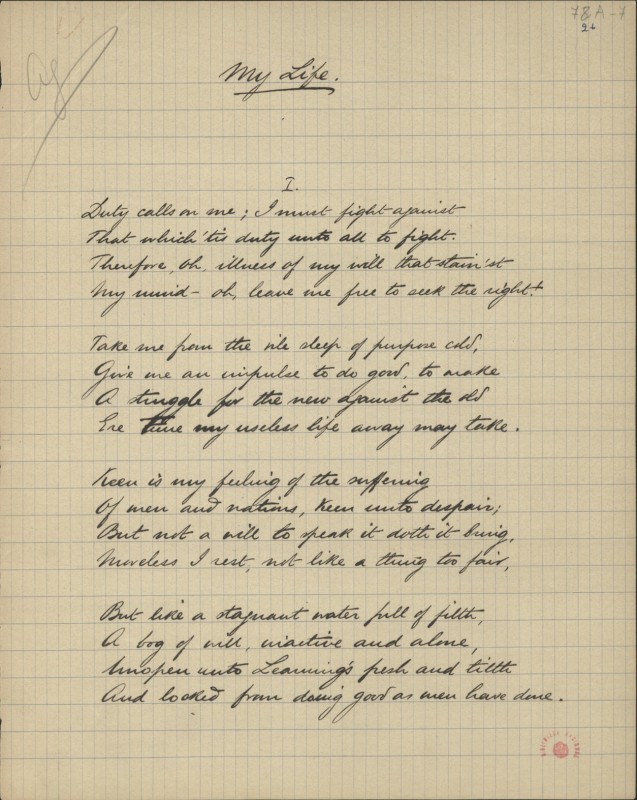 78A-7
My Life.
I.
Duty calls on me; I must fight against
That which 'tis duty unto all to fight.
Therefore, oh, illness of my will that stain'st
My mind – oh, leave me free to seek the right!
Take me from the vile sleep of purpose cold,
Give me an impulse to do good, to make
A struggle for the new against the old
Ere time my useless life away may take.
Keen is my feeling of the suffering
Of men and nations, keen unto despair;
But not a will to speak it doth it bring,
Moveless I rest, not like a thing too fair,
But like a stagnant water full of filth,
A bog of will, inactive and alone,
Unopen unto Learning's fresh and tilth
And locked from doing good as men have done.